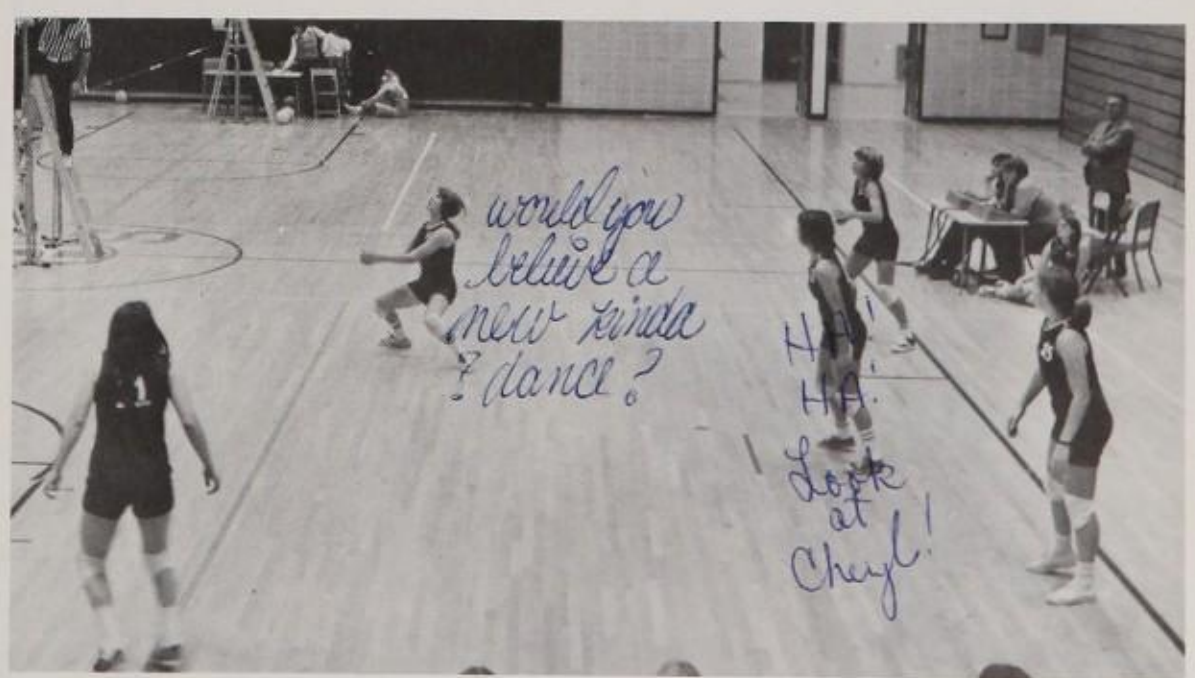 would you
believe a
new kinda
? dance?
HA!
HA!
Look
at
Cheryl!
1